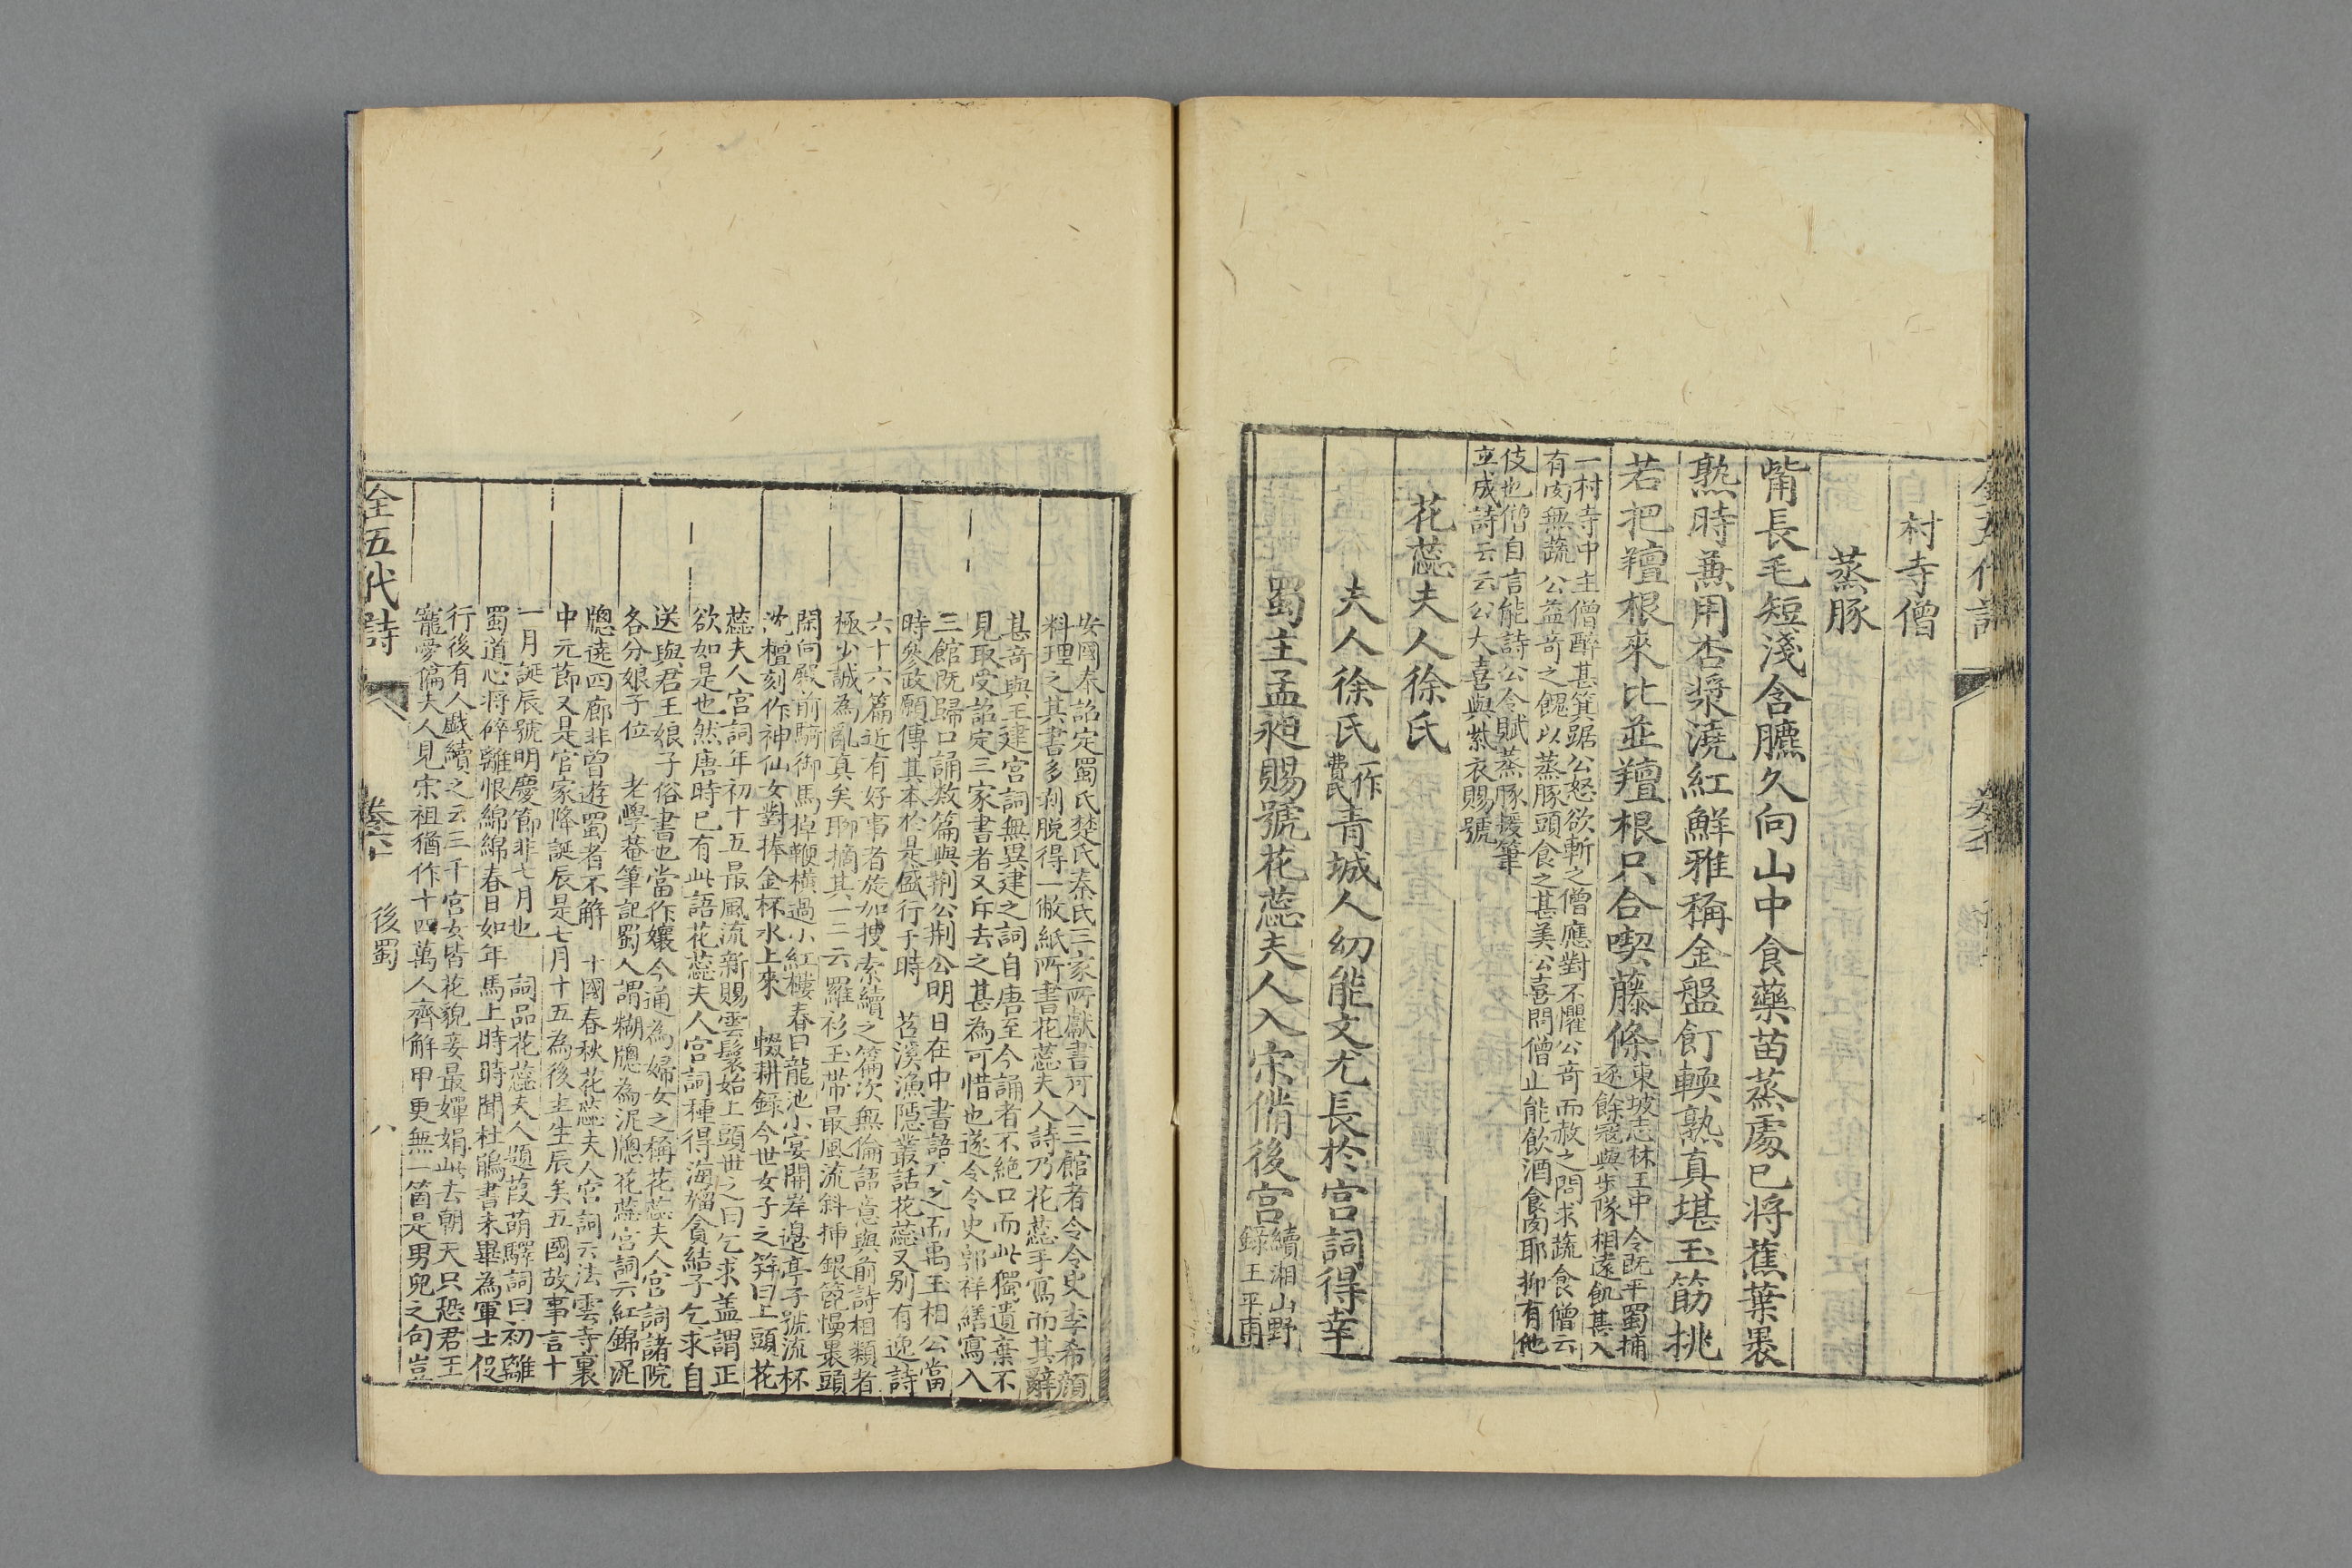 村寺僧
蒸豚
嘴長毛短淺含臕久向山中食藥苗蒸處已將蕉葉褁
熟時兼用杏漿澆紅鮮雅稱金盤飣輭熟真堪玉筯挑
若把羶根來比並羶根只合喫藤條
東坡志林王中令既平蜀捕
逐餘寇與步隊相遠飢甚入
一村寺中主僧醉甚箕踞公怒欲斬之僧應對不懼公奇而赦之問求蔬食僧云
有肉無蔬公益奇之餽以蒸豚頭食之甚美公喜問僧止能飲酒食肉耶抑有他
伎也僧自言能詩公令賦蒸豚援筆
立成詩云云公大喜與紫衣賜號
花蕊夫人徐氏
夫人徐氏一作費氏青城人幼能文尤長於宮詞得幸
蜀主孟昶賜號花蕊夫人入宋備後宮
續湘山野
錄王平甫
安國奉詔定蜀氏楚氏秦氏三家所獻書可入三館者令令史李希顔
料理之其書多剥脱得一敝紙所書花蕊夫人詩乃花蕊手寫而其辭
甚奇與王建宮詞無異建之詞自唐至今誦者不絶口而此獨遺棄不
見取受詔定三家書者又斥去之甚為可惜也遂令令史郭祥繕寫入
三館既歸口誦数篇與荆公荆公明日在中書語及之而禹玉相公當
時叅政願傳其本於是盛行于時　苕溪漁隱叢話花蕊又别有逸詩
六十六篇近有好事者旋加搜索續之篇次無倫語意與前詩相類者
極少誠為亂真矣聊摘其一二云羅衫玉帶最風流斜揷銀篦慢褁頭
閑向殿前騎御馬掉鞭横過小紅樓春日龍池小宴開岸邉亭子號流杯
沈檀刻作神仙女對捧金杯水上來　輟耕錄今世女子之笄曰上頭花
蕊夫人宮詞年初十五最風流新賜雲鬟始上頭世之曰乞求盖謂正
欲如是也然唐時已有此語花蕊夫人宮詞種得海㽞貪結子乞求自
送與君王娘子俗書也當作孃今通為婦女之稱花蕊夫人宮詞諸院
各分娘子位　老學菴筆記蜀人謂糊牕為泥牕花蕊宮詞云紅錦泥
牕遶四廊非曽遊蜀者不解　十國春秋花蕊夫人宮詞云法雲寺裏
中元節又是官家降誕辰是七月十五為後主生辰矣五國故事言十
一月誕辰號明慶節非七月也　詞品花蕊夫人題葭萌驛詞曰初離
蜀道心將碎離恨綿綿春日如年馬上時時聞杜鵑書未畢為軍士促
行後有人戯續之云三千宮女皆花貌妾最嬋娟此去朝天只恐君王
寵愛偏夫人見宋祖猶作十四萬人齊解甲更無一箇是男兒之句豈
全五代詩
卷六十
後蜀
八